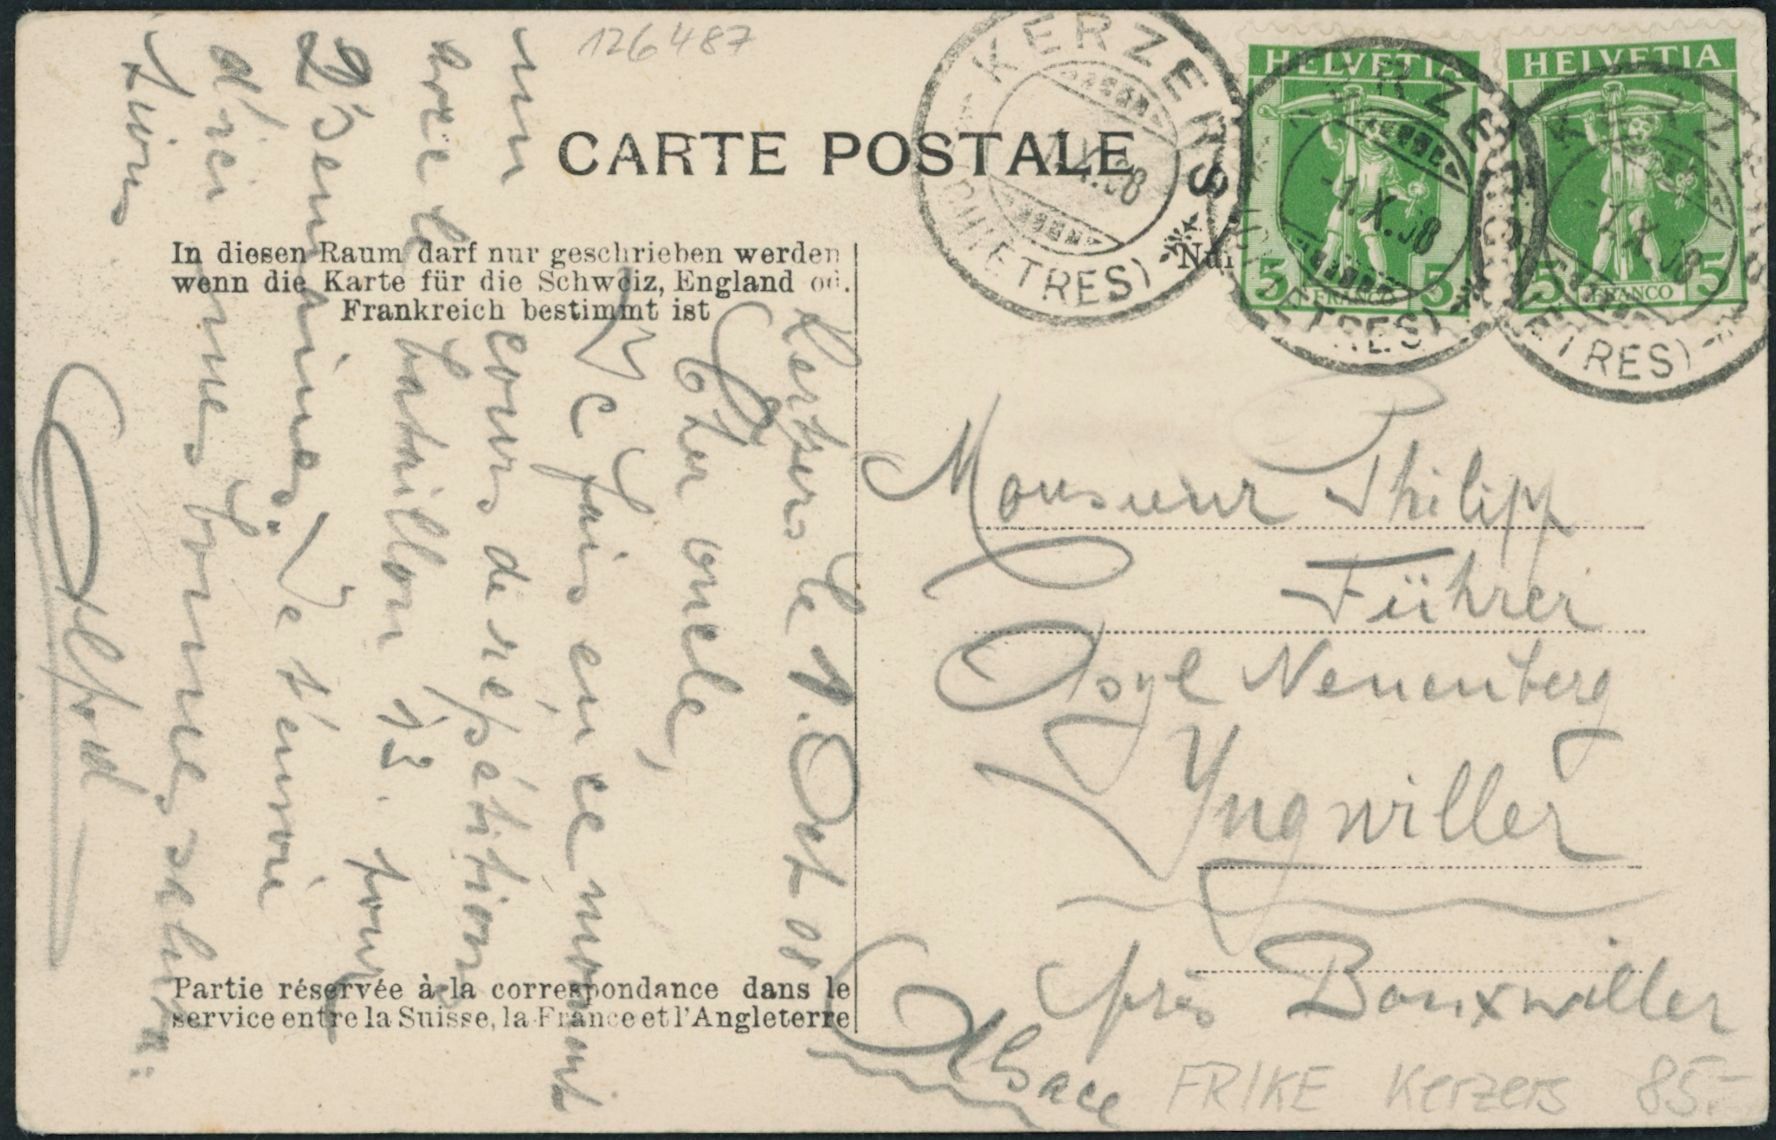 126487
CARTE POSTALE
KERZERS
(CHIETRES)
HELVETIA
5 FRANCO 5
KERZERS
-1.X.08
(CHIETRES)
HELVETIA
5 FRANCO 5
KERZERS
-1.X.08
(CHIETRES)
In diesen Raum darf nur geschrieben werden
wenn die Karte für die Schweiz, England od.
Frankreich bestimmt ist
Kerzers le 1. Oct 08
Cher oncle,
Je fais en ce moment
un cours de répétition
avec le bataillon 13. pour
2 semaines. Je t'envoie
d'ici mes bonnes saluta-
tions
Alfred
Partie réservée à la correspondance dans le
service entre la Suisse, la France et l'Angleterre
Monsieur Philipp
Führer
Asyl Neuenberg
Yngwiller
près Bouxwiller
Alsace
FRIKE Kerzers 85.-